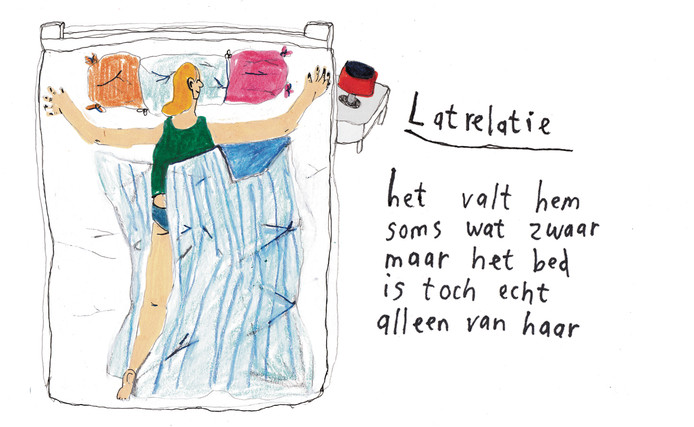 Latrelatie
het valt hem
soms wat zwaar
maar het bed
is toch echt
alleen van haar